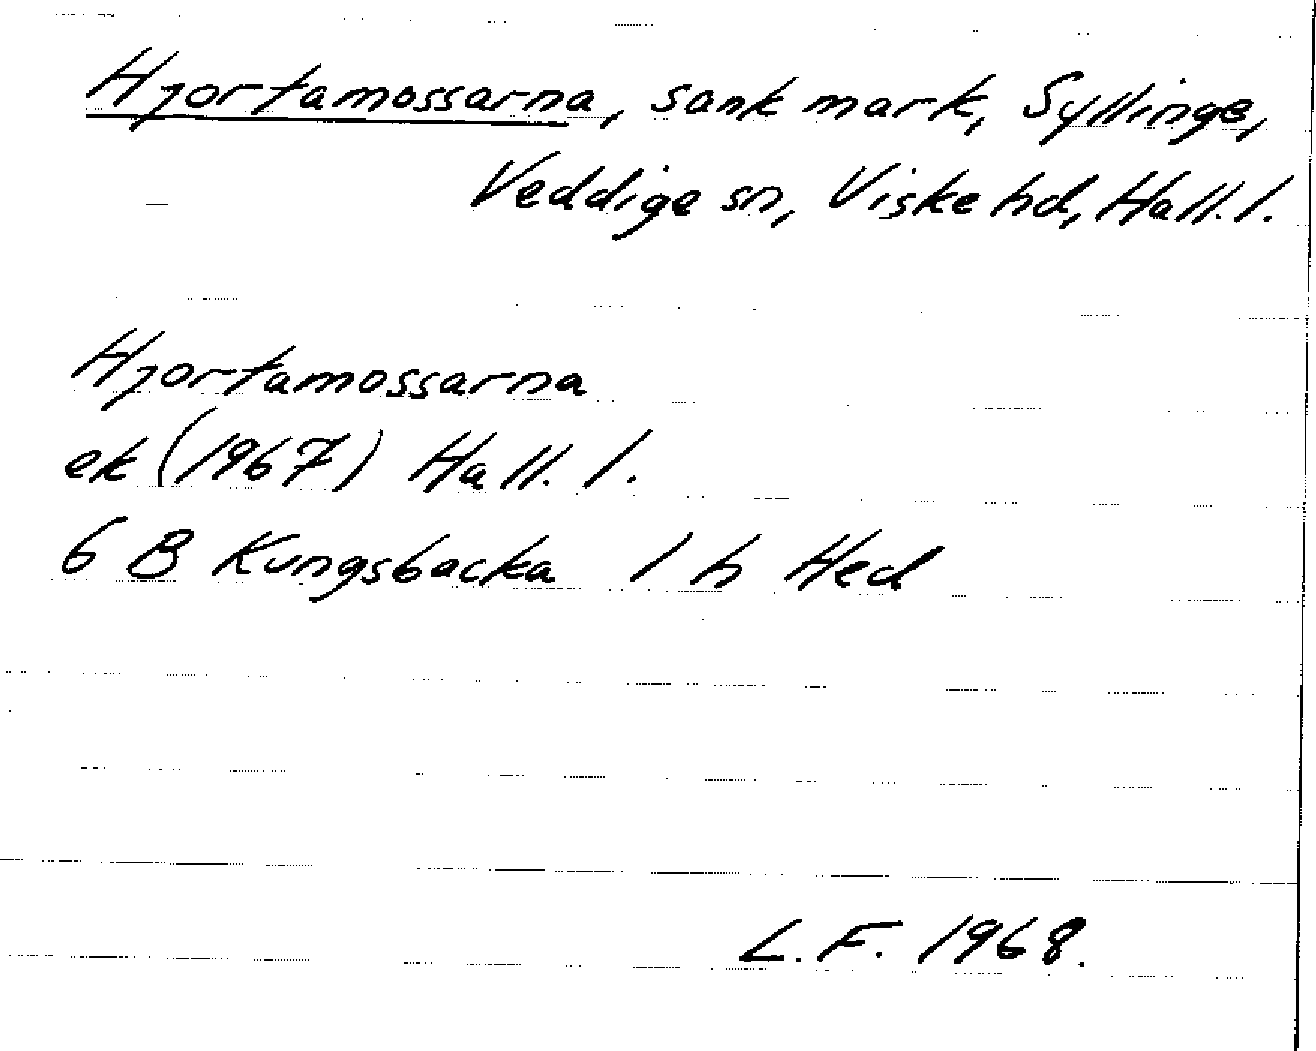 Hjortamossarna, sank mark, Syllinge,
Veddige sn, Viske hd, Hall. l.
Hjortamossarna
ek (1967) Hall. l.
6 B Kungsbacka 1 h Hed
L.F. 1968.